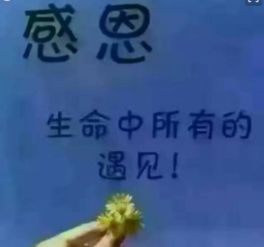 感恩
生命中所有的
遇见!